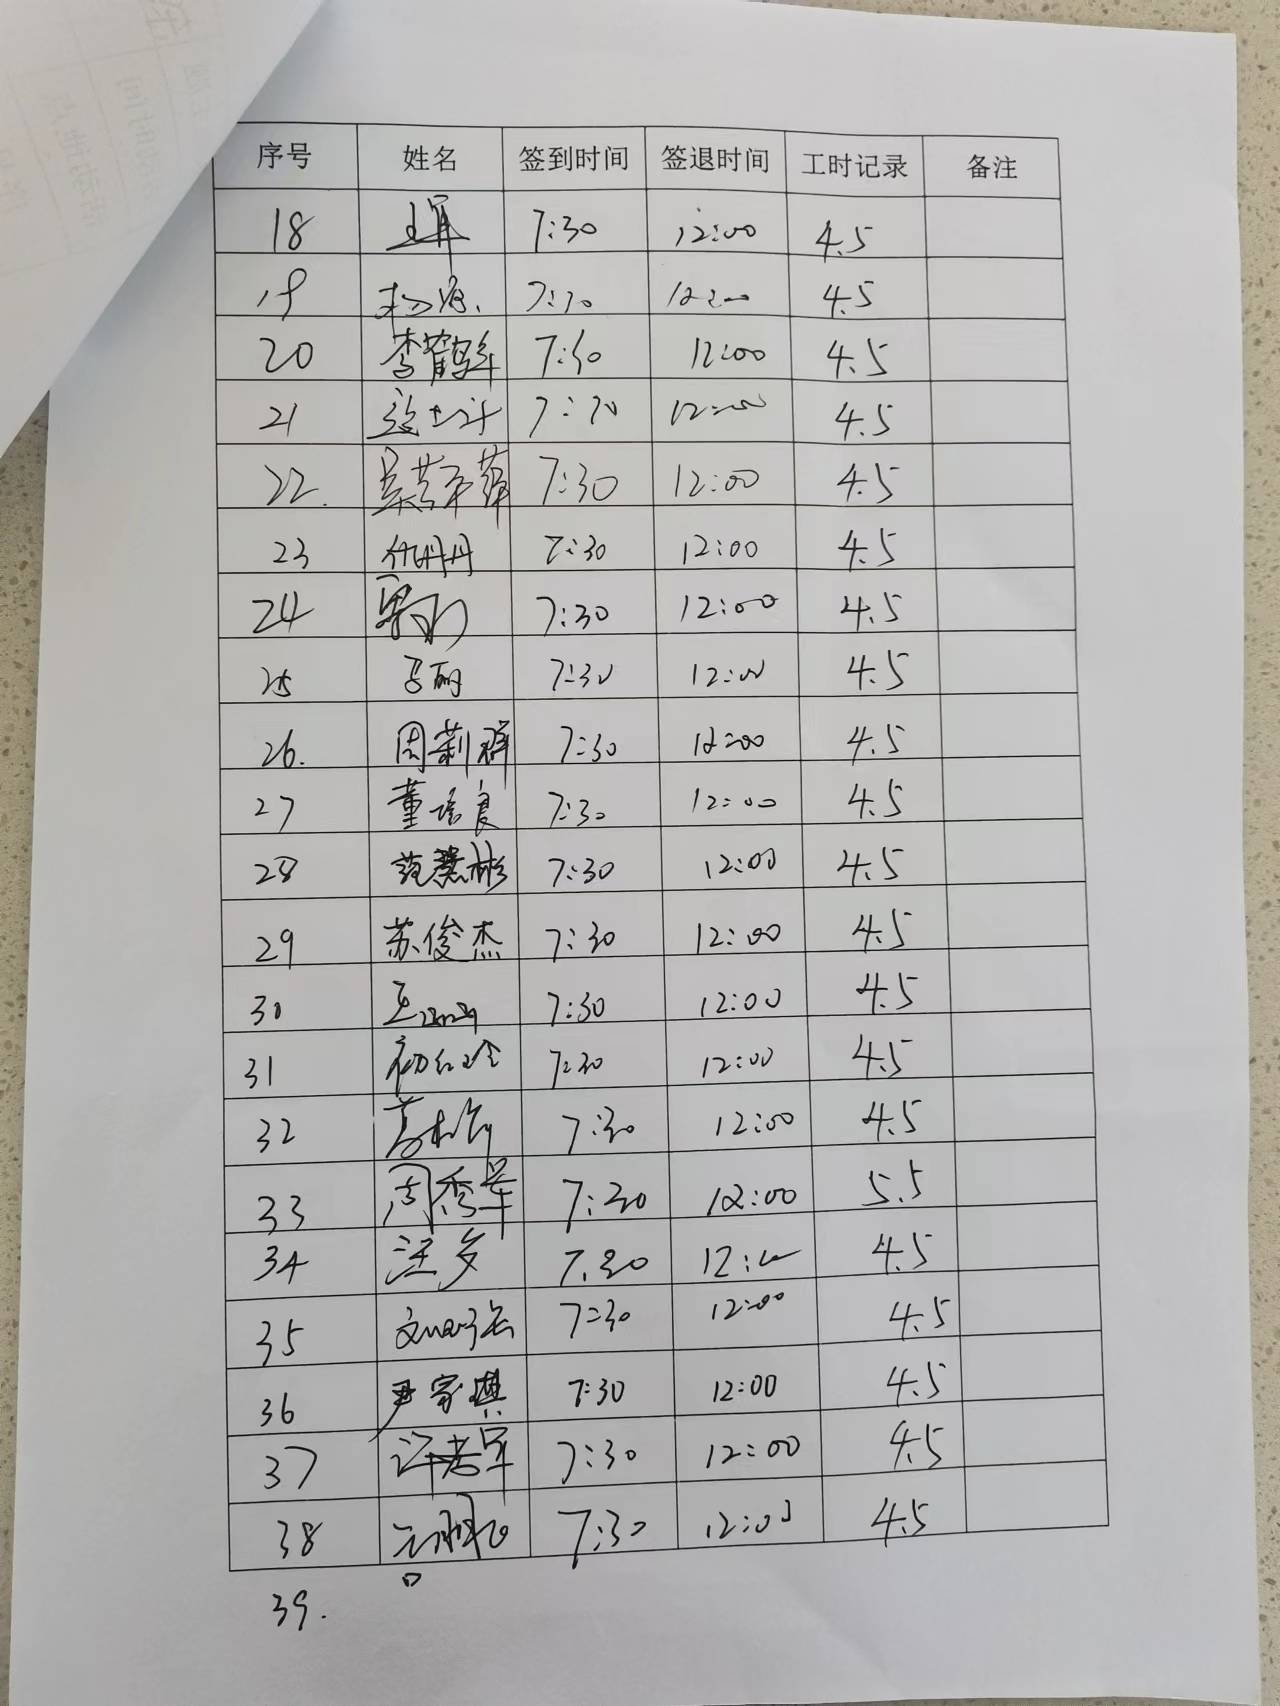 序号 姓名 签到时间 签退时间 工时记录 备注
18 7:30 12:00 4.5
19 7:30 12:00 4.5
20 李鹤年 7:30 12:00 4.5
21 7:30 12:00 4.5
22. 7:30 12:00 4.5
23 付丹丹 7:30 12:00 4.5
24 7:30 12:00 4.5
25 7:30 12:00 4.5
26. 周莉群 7:30 12:00 4.5
27 董培良 7:30 12:00 4.5
28 范慧彬 7:30 12:00 4.5
29 苏俊杰 7:30 12:00 4.5
30 7:30 12:00 4.5
31 初红玲 7:30 12:00 4.5
32 7:30 12:00 4.5
33 周秀军 7:30 12:00 5.5
34 汪多 7:30 12:00 4.5
35 7:30 12:00 4.5
36 尹家琪 7:30 12:00 4.5
37 7:30 12:00 4.5
38 7:30 12:00 4.5
39.